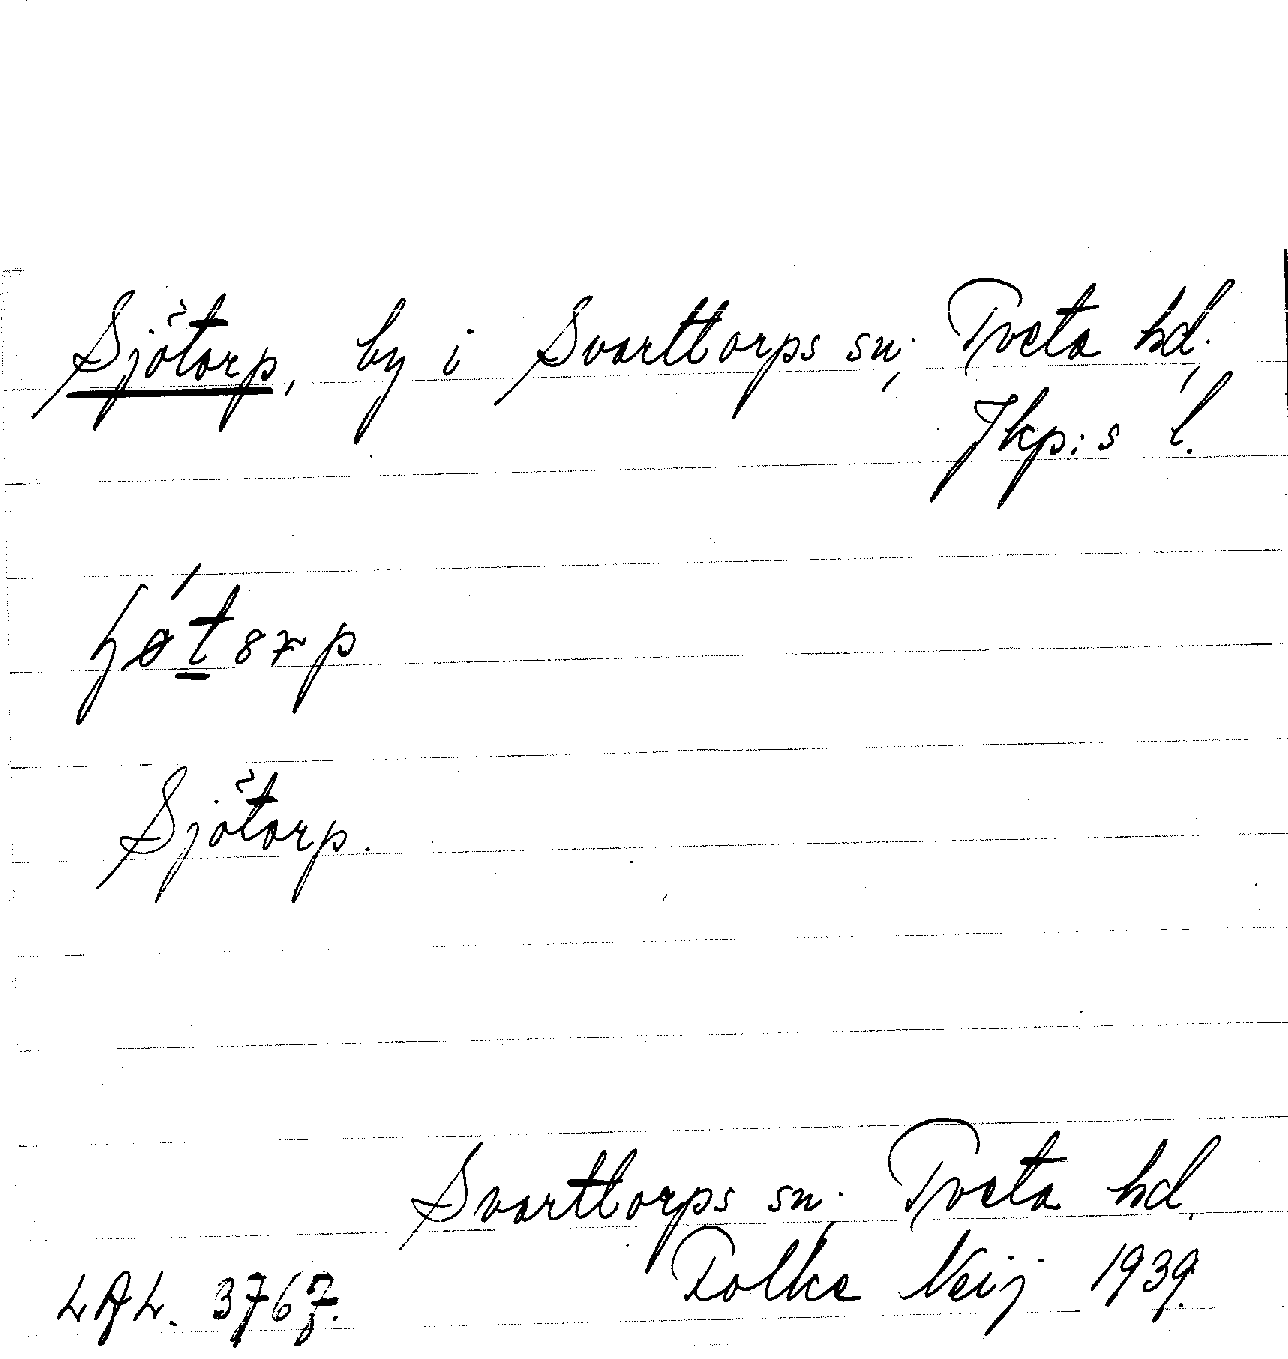 Sjötorp, by i Svarttorps sn, Tveta hd,
Jkp:s l.
Sjötorp.
Svarttorps sn, Tveta hd.
Folke Neij 1939.
LAL. 3767.